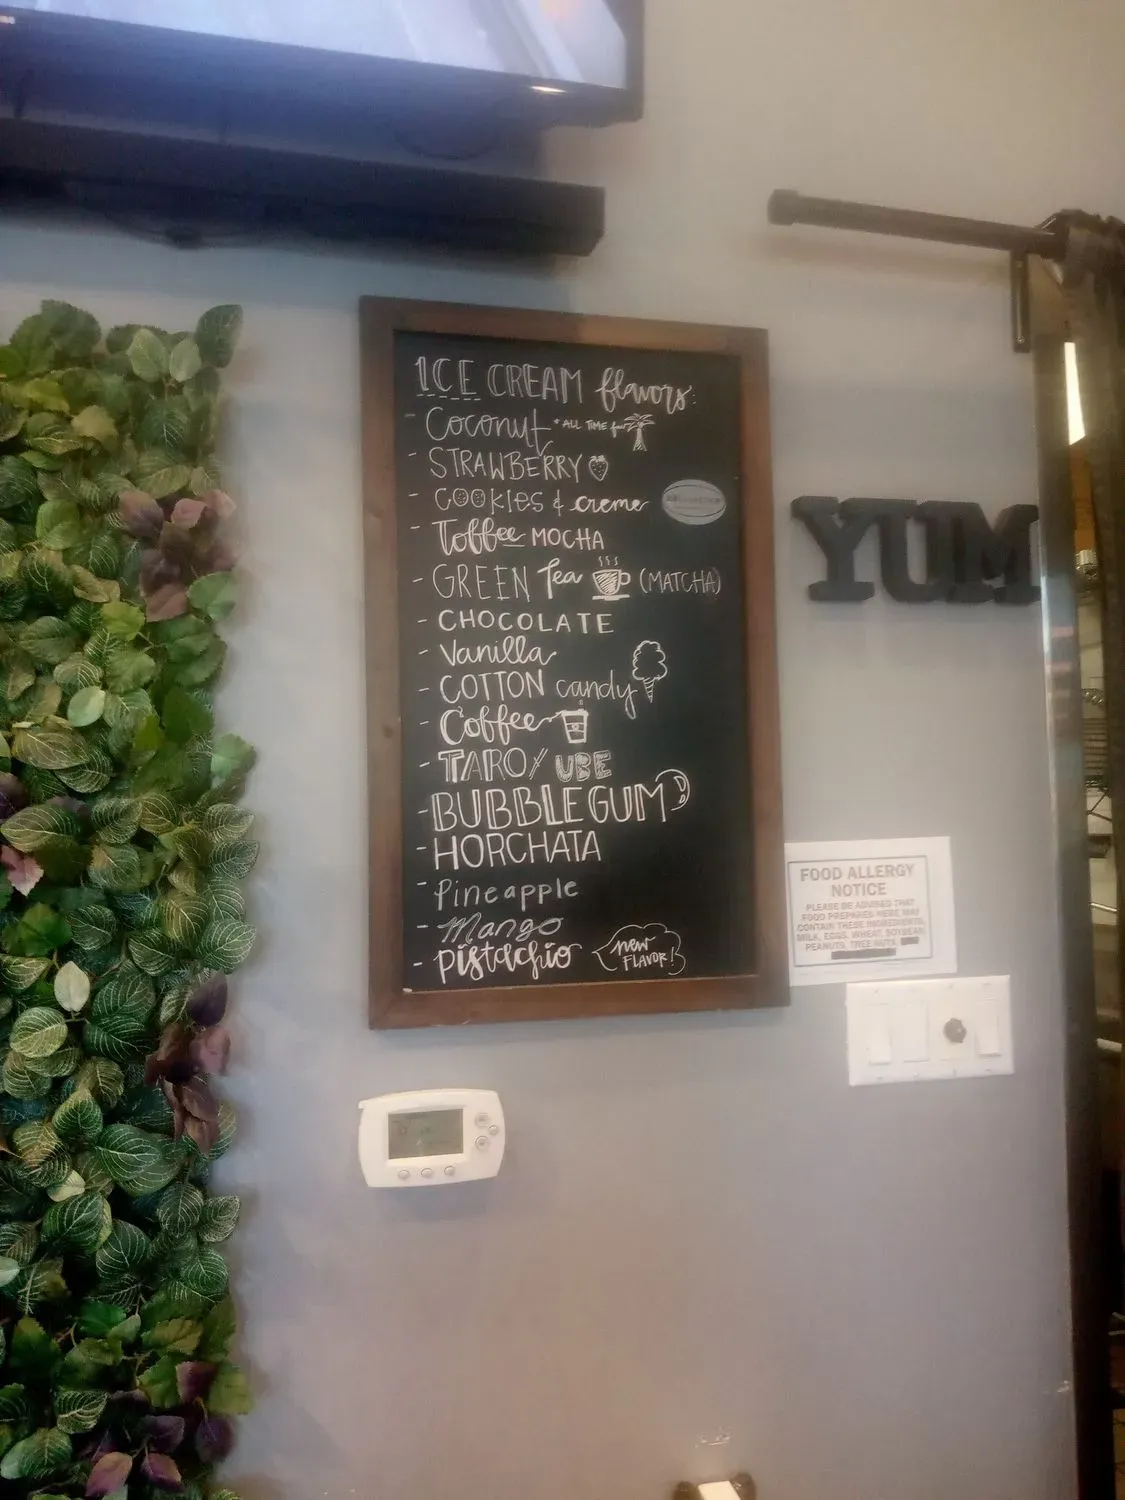 ICE CREAM flavors:
- Coconut *ALL TIME fav
- STRAWBERRY
- COOKIES & creme
- Toffee MOCHA
- GREEN Tea (MATCHA)
- CHOCOLATE
- Vanilla
- COTTON candy
- Coffee
- TARO/UBE
- BUBBLEGUM
- HORCHATA
- Pineapple
- Mango
- pistachio
new
FLAVOR!
YUM
FOOD ALLERGY
NOTICE
PLEASE BE ADVISED THAT
FOOD PREPARED HERE MAY
CONTAIN THESE INGREDIENTS:
MILK, EGGS, WHEAT, SOYBEAN,
PEANUTS, TREE NUTS,